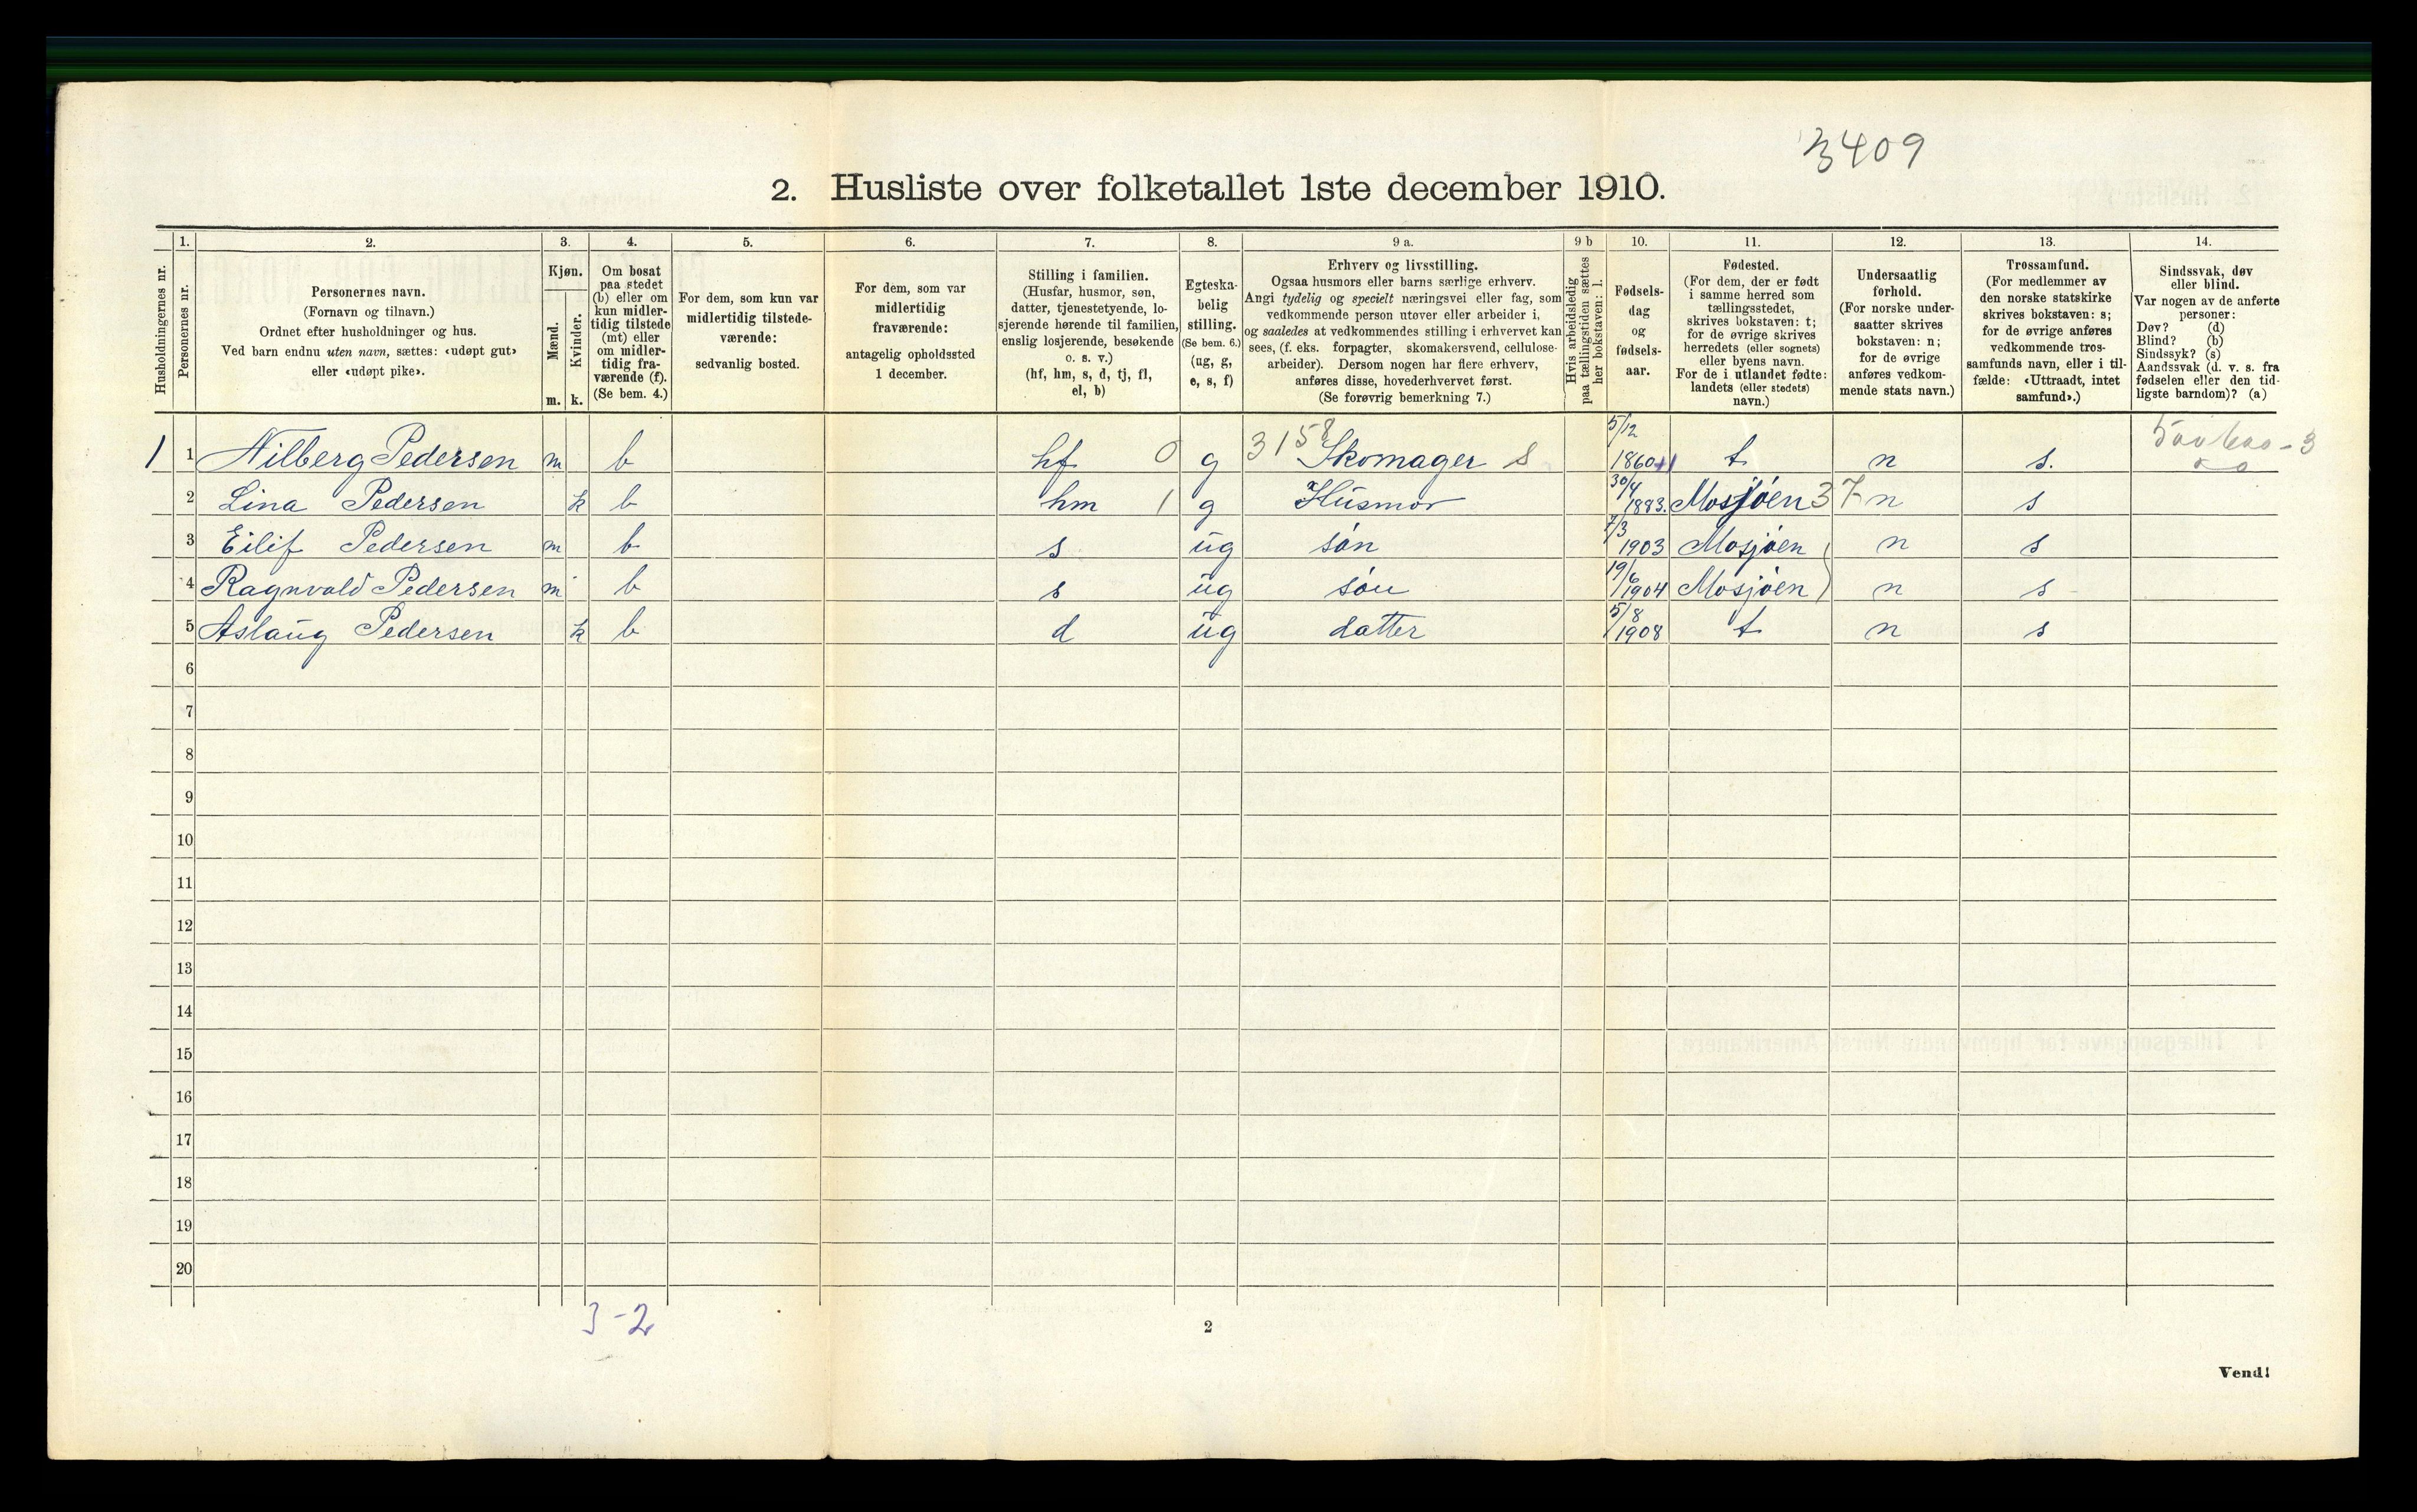 3409
2. Husliste over folketallet 1ste december 1910.
Husholdningernes nr.
1.
Personernes nr.
2.
Personernes navn.
(Fornavn og tilnavn.)
Ordnet efter husholdninger og hus.
Ved barn endnu uten navn, sættes: «udøpt gut»
eller «udøpt pike».
3.
Kjøn.
Mænd.
Kvinder.
m. k.
4.
Om bosat
paa stedet
(b) eller om
kun midler-
tidig tilstede
(mt) eller
om midler-
tidig fra-
værende (f).
(Se bem. 4.)
5.
For dem, som kun var
midlertidig tilstede-
værende:
sedvanlig bosted.
6.
For dem, som var
midlertidig
fraværende:
antagelig opholdssted
1 december.
7.
Stilling i familien.
(Husfar, husmor, søn,
datter, tjenestetyende, lo-
sjerende hørende til familien,
enslig losjerende, besøkende
o. s. v.)
(hf, hm, s, d, tj, fl,
el, b)
8.
Egteska-
belig
stilling.
(Se bem. 6.)
(ug, g,
e, s, f)
9 a.
Erhverv og livsstilling.
Ogsaa husmors eller barns særlige erhverv.
Angi tydelig og specielt næringsvei eller fag, som
vedkommende person utøver eller arbeider i,
og saaledes at vedkommendes stilling i erhvervet kan
sees, (f. eks. forpagter, skomakersvend, cellulose-
arbeider). Dersom nogen har flere erhverv,
anføres disse, hovederhvervet først.
(Se forøvrig bemerkning 7.)
9 b
Hvis arbeidsledig
paa tællingstiden sættes
her bokstaven: l.
10.
Fødsels-
dag
og
fødsels-
aar.
11.
Fødested.
(For dem, der er født
i samme herred som
tællingsstedet,
skrives bokstaven: t;
for de øvrige skrives
herredets (eller sognets)
eller byens navn.
For de i utlandet fødte:
landets (eller stedets)
navn.)
12.
Undersaatlig
forhold.
(For norske under-
saatter skrives
bokstaven: n;
for de øvrige
anføres vedkom-
mende stats navn.)
13.
Trossamfund.
(For medlemmer av
den norske statskirke
skrives bokstaven: s;
for de øvrige anføres
vedkommende tros-
samfunds navn, eller i til-
fælde: «Uttraadt, intet
samfund».)
14.
Sindssvak, døv
eller blind.
Var nogen av de anførte
personer:
Døv? (d)
Blind? (b)
Sindssyk? (s)
Aandssvak (d. v. s. fra
fødselen eller den tid-
ligste barndom)? (a)
1 1 Nilberg Pedersen m b hf 0 g 3158 Skomager s 5/12 1860 t n s.
2 Lina Pedersen k b hm 1 g Husmor 30/4 1883. Mosjøen 37 n s
3 Eilif Pedersen m b s ug søn 7/3 1903 Mosjøen n s
4 Ragnvald Pedersen m b s ug søn 19/6 1904 Mosjøen n s
5 Aslaug Pedersen k b d ug datter 5/8 1908 t n s
6
7
8
9
10
11
12
13
14
15
16
17
18
19
20
3-2
2
Vend!